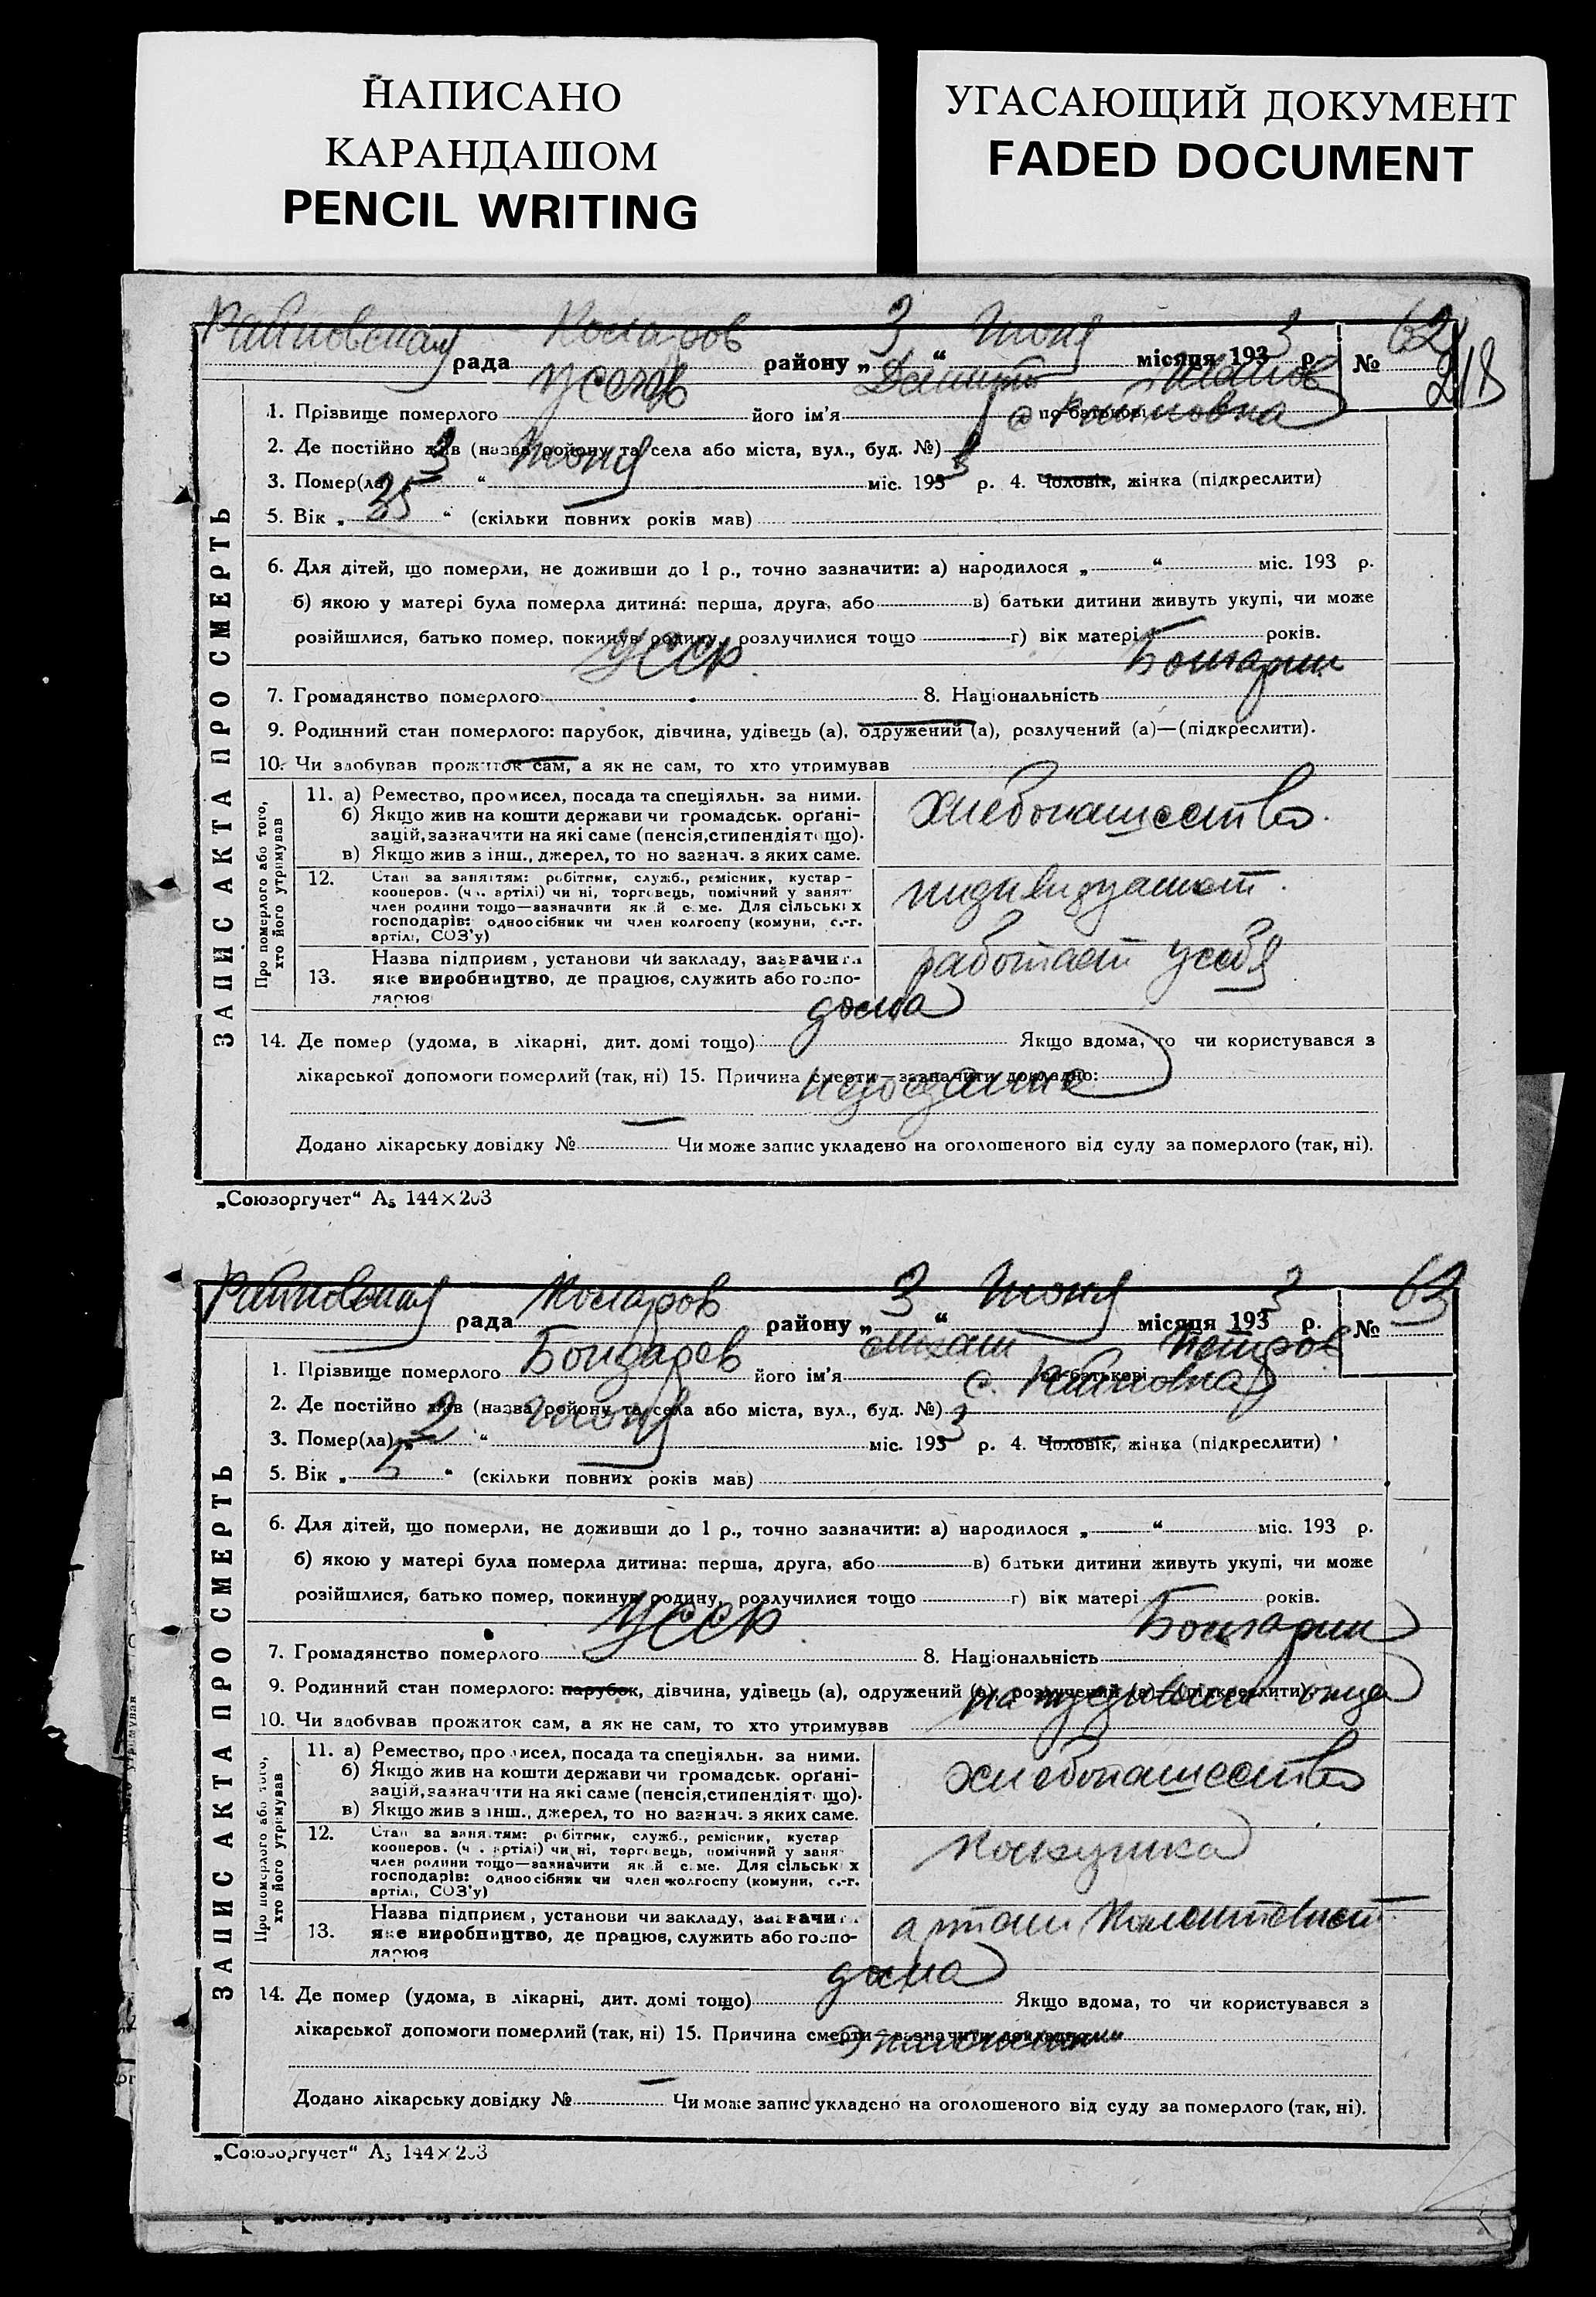 НАПИСАНО
КАРАНДАШОМ
PENCIL WRITING
УГАСАЮЩИЙ ДОКУМЕНТ
FADED DOCUMENT
Райновская рада Коларов району „ 3 “ Июня місяця 193 3 р. № 62
218
1. Прізвище померлого його ім'я по батькові Иванов
2. Де постійно жив (назва району та села або міста, вул., буд. №) с Райновка
3. Помер(ла) „ 3 “ Июня міс. 193 3 р. 4. Чоловік, жінка (підкреслити)
5. Вік „ 35 “ (скільки повних років мав)
6. Для дітей, що померли, не доживши до 1 р., точно зазначити: а) народилося „ “ міс. 193 р.
б) якою у матері була померла дитина: перша, друга, або в) батьки дитини живуть укупі, чи може
розійшлися, батько помер, покинув родину, розлучилися тощо г) вік матері років.
7. Громадянство померлого УССР 8. Національність Болгарин
9. Родинний стан померлого: парубок, дівчина, удівець (а), одружений (а), розлучений (а)—(підкреслити).
10. Чи здобував прожиток сам, а як не сам, то хто утримував
ЗАПИС АКТА ПРО СМЕРТЬ
Про померлого або того,
хто його утримував
11. а) Ремество, промисел, посада та спеціяльн. за ними.
б) Якщо жив на кошти держави чи громадськ. орґані-
зацій, зазначити на які саме (пенсія, стипендія тощо).
в) Якщо жив з інш., джерел, то но зазнач. з яких саме.
хлебопашество.
12. Стан за заняттям: робітник, служб., ремісник, кустар-
кооперов. (чл. артілі) чи ні, торговець, помічний у занят
член родини тощо—зазначити який саме. Для сільських
господарів: одноосібник чи член колгоспу (комуни, с.-г.
артілі, СОЗ'у)
индивидуалист.
13. Назва підприєм, установи чи закладу, зазначити
яке виробництво, де працює, служить або госпо-
дарює
работает у себя
14. Де помер (удома, в лікарні, дит. домі тощо) дома Якщо вдома, то чи користувався з
лікарської допомоги померлий (так, ні) 15. Причина смерти—зазначити докладно: недоедание
Додано лікарську довідку № — Чи може запис укладено на оголошеного від суду за померлого (так, ні).
„Союзоргучет“ А₅ 144×203
Райновская рада Коларов району „ 3 “ Июня місяця 193 3 р. № 63
1. Прізвище померлого Бондарев його ім'я по батькові Петров
2. Де постійно жив (назва району та села або міста, вул., буд. №) с. Райновка
3. Помер(ла) „ 2 “ Июня міс. 193 3 р. 4. Чоловік, жінка (підкреслити)
5. Вік „ 5 “ (скільки повних років мав)
6. Для дітей, що померли, не доживши до 1 р., точно зазначити: а) народилося „ “ міс. 193 р.
б) якою у матері була померла дитина: перша, друга, або в) батьки дитини живуть укупі, чи може
розійшлися, батько помер, покинув родину, розлучилися тощо г) вік матері років.
7. Громадянство померлого УССР 8. Національність Болгарин
9. Родинний стан померлого: парубок, дівчина, удівець (а), одружений (а), розлучений (а)—(підкреслити)
10. Чи здобував прожиток сам, а як не сам, то хто утримував на иждивении отца
ЗАПИС АКТА ПРО СМЕРТЬ
Про померлого або того,
хто його утримував
11. а) Ремество, промисел, посада та спеціяльн. за ними.
б) Якщо жив на кошти держави чи громадськ. орґані-
зацій, зазначити на які саме (пенсія, стипендія т. що).
в) Якщо жив з інш., джерел, то но зазнач. з яких саме.
хлебопашество
12. Стан за заняттям: робітник, служб., ремісник, кустар
кооперов. (чл. артілі) чи ні, торговець, помічний у заня
член родини тощо—зазначити який саме. Для сільських
господарів: одноосібник чи член колгоспу (комуни, с.-г.
артілі, СОЗ'у)
13. Назва підприєм, установи чи закладу, зазначити
яке виробництво, де працює, служить або госпо-
дарює
14. Де помер (удома, в лікарні, дит. домі тощо) дома Якщо вдома, то чи користувався з
лікарської допомоги померлий (так, ні) 15. Причина смерти—зазначити докладно:
Додано лікарську довідку № — Чи може запис укладено на оголошеного від суду за померлого (так, ні).
„Союзоргучет“ А₅ 144×203